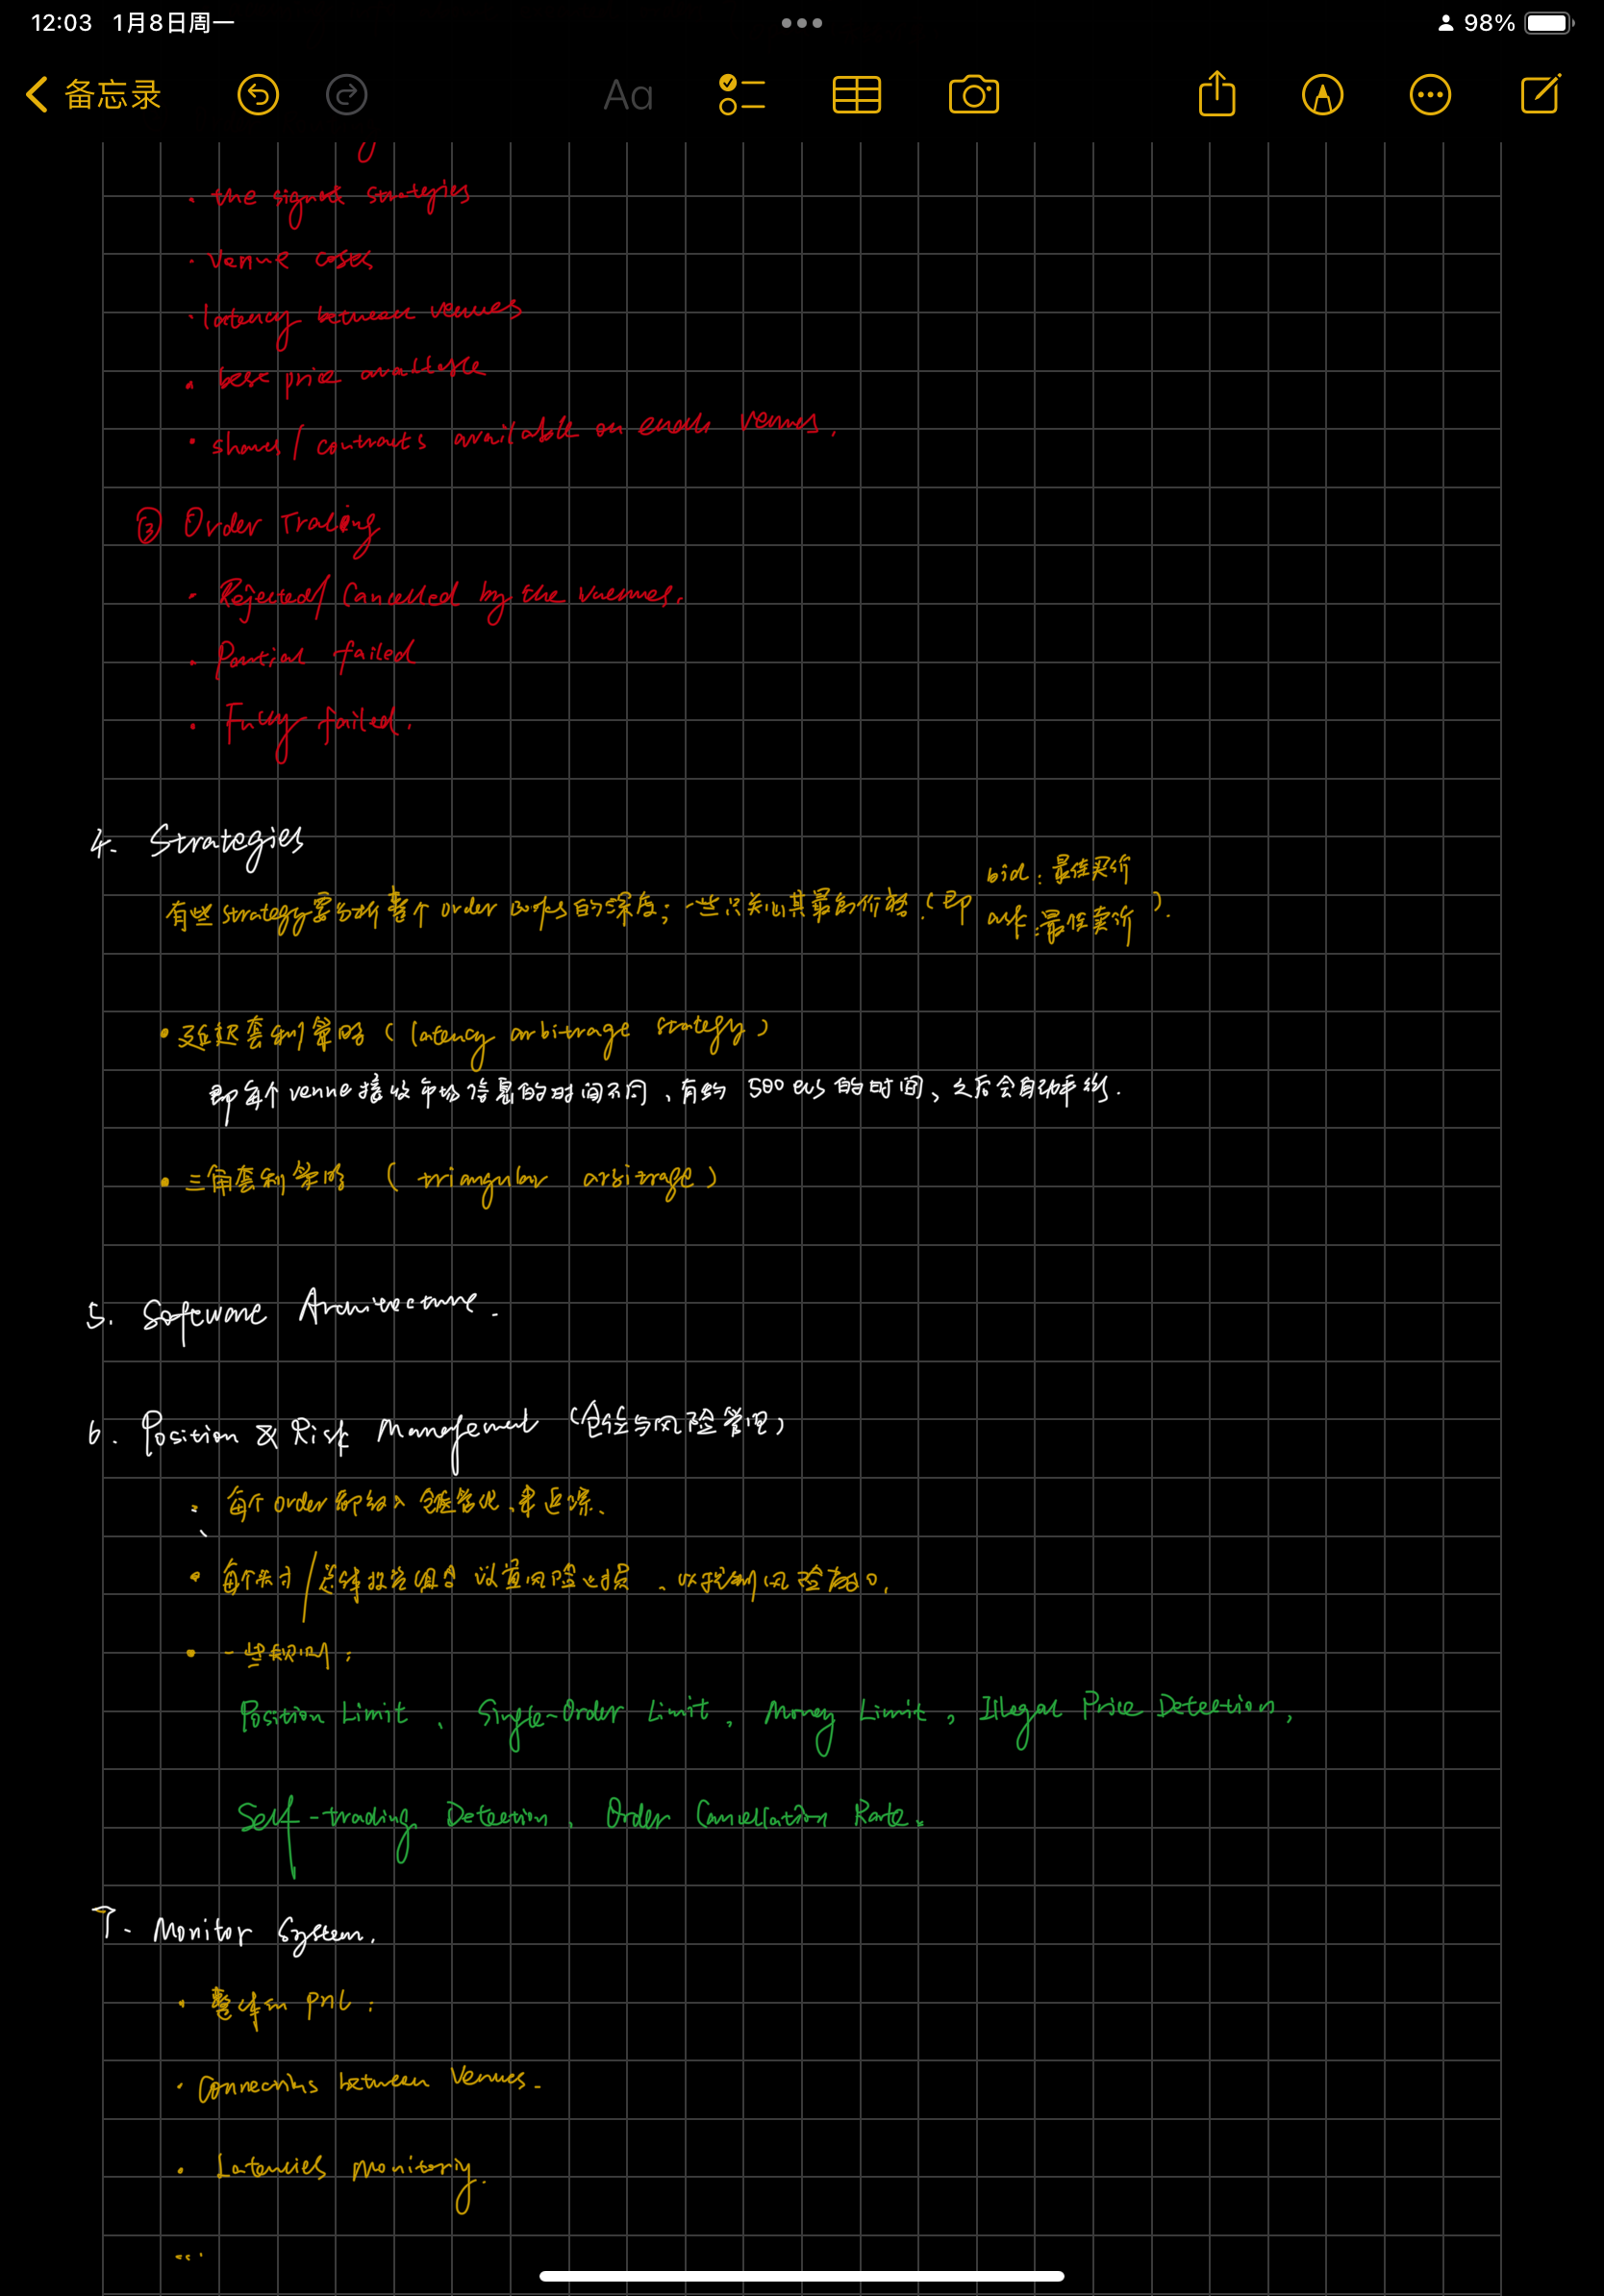 12:03 1月8日周一
98%
备忘录
Aa
· the signal strategies
· Venue costs
· latency between venues
· best price available
· shares / contracts available on each venues.
③ Order Tracing
· Rejected / Cancelled by the vuenues.
· Partial failed
· Fully failed.
4. Strategies
bid: 最佳买价
有些 strategy 要分析整个 order books 的深度; 一些只关心其最高价格 (即
ask: 最佳卖价 ).
· 延迟套利策略 ( latency arbitrage strategy )
即每个 venue 接收市场信息的时间不同、有约 500 的时间、之后会自动平衡.
· 三角套利策略 ( triangular arbitrage )
5. Software Architecture.
6. Position & Risk Management (仓位与风险管理)
· 每个 order 都纳入仓位管理、来追踪、
· 每个 / 总体投资组合设置风险、以控制风险敞口.
· 一些规则:
Position Limit 、 Single-Order Limit 、 Money Limit , Illegal Price Detection,
Self-trading Detection 、 Order Cancellation Rate.
7. Monitor System.
· 整体 PnL :
· Connections between Venues.
· Latencies monitoring.
...